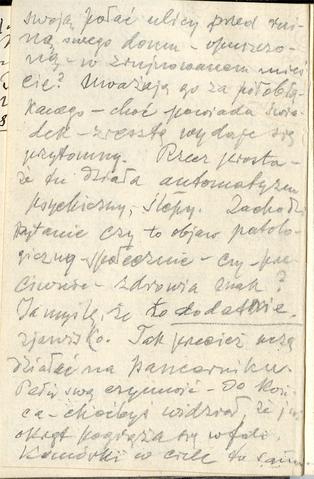 swoją połać ulicy przed rui-
ną swego domu - opuszczo-
ną - w zrujnowanem mieś
cie? Uważają go za półobłą-
kanego - choć powiada świa-
dek - zresztą wydaje się
przytomny. Rzecz prosta -
że tu działa automatyzm
psychiczny, ślepy. Zachodzi
pytanie czy to objaw patolo-
giczny - społecznie - czy - prze
ciwnie - zdrowia znak?
Ja myślę, że to dodatnie
zjawisko. Tak przecież muszą
działać na pancerniku.
Pełń swą czynność - do koń-
ca - choćbyś widział, że już
okręt pogrąża się w fali.
Komórki w ciele to samo.